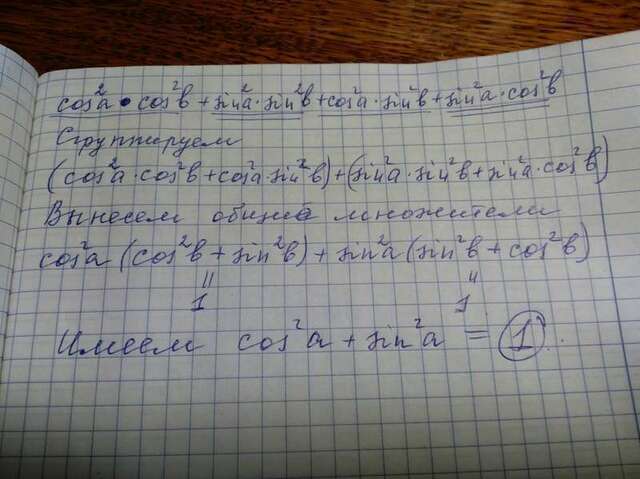 cos²a · cos²b + sin²a · sin²b + cos²a · sin²b + sin²a · cos²b
Сгруппируем
(cos²a · cos²b + cos²a · sin²b) + (sin²a · sin²b + sin²a · cos²b)
Вынесем общие множители
cos²a (cos²b + sin²b) + sin²a (sin²b + cos²b)
" "
1 1
Имеем cos²a + sin²a = 1.